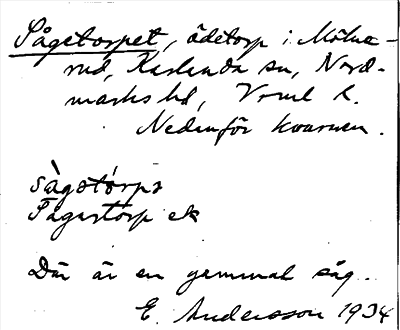 Sågetorpet, ödetorp i Mölne-
rud, Karlanda sn, Nord-
marks hd, Vrml l.
Nedanför kvarnen.
sågstórpə
Fågastorp ek
Där är en gammal såg.
E. Andersson 1934